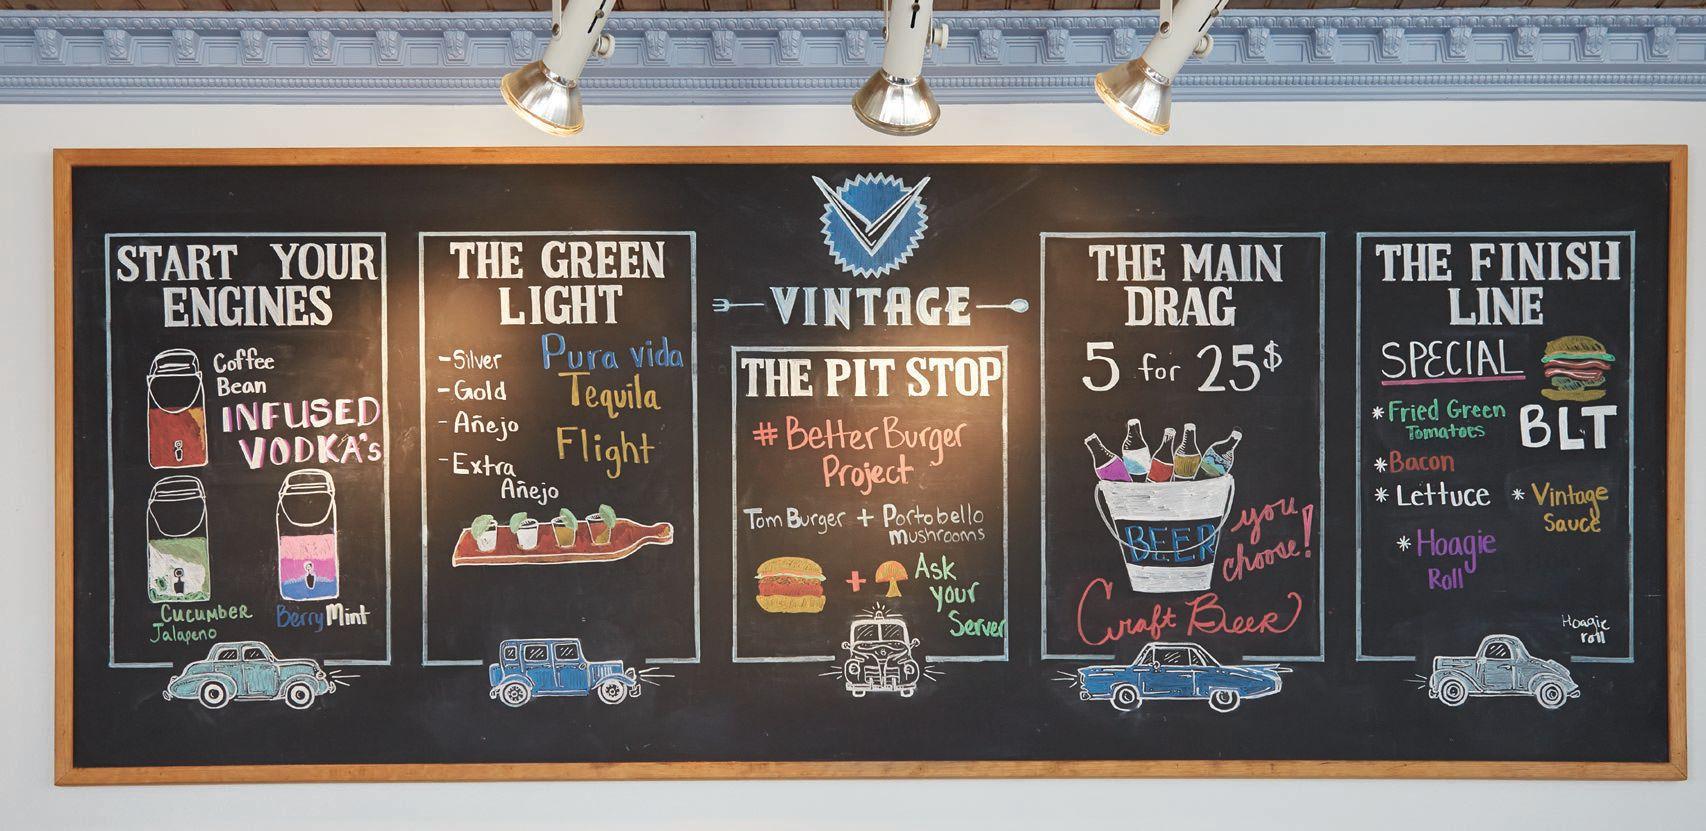 START YOUR
ENGINES
Coffee
Bean
INFUSED
VODKA's
Cucumber
Jalapeno
Berry Mint
THE GREEN
LIGHT
-Silver
-Gold
-Añejo
-Extra
Añejo
Pura vida
Tequila
Flight
VINTAGE
THE PIT STOP
#Better Burger
Project
Tom Burger + Portobello
mushrooms
+
Ask
your
Server
THE MAIN
DRAG
5 for 25$
BEER
you
choose!
Craft Beer
THE FINISH
LINE
SPECIAL
BLT
*Fried Green
Tomatoes
*Bacon
*Lettuce
*Vintage
Sauce
*Hoagie
Roll
Hoagie
roll